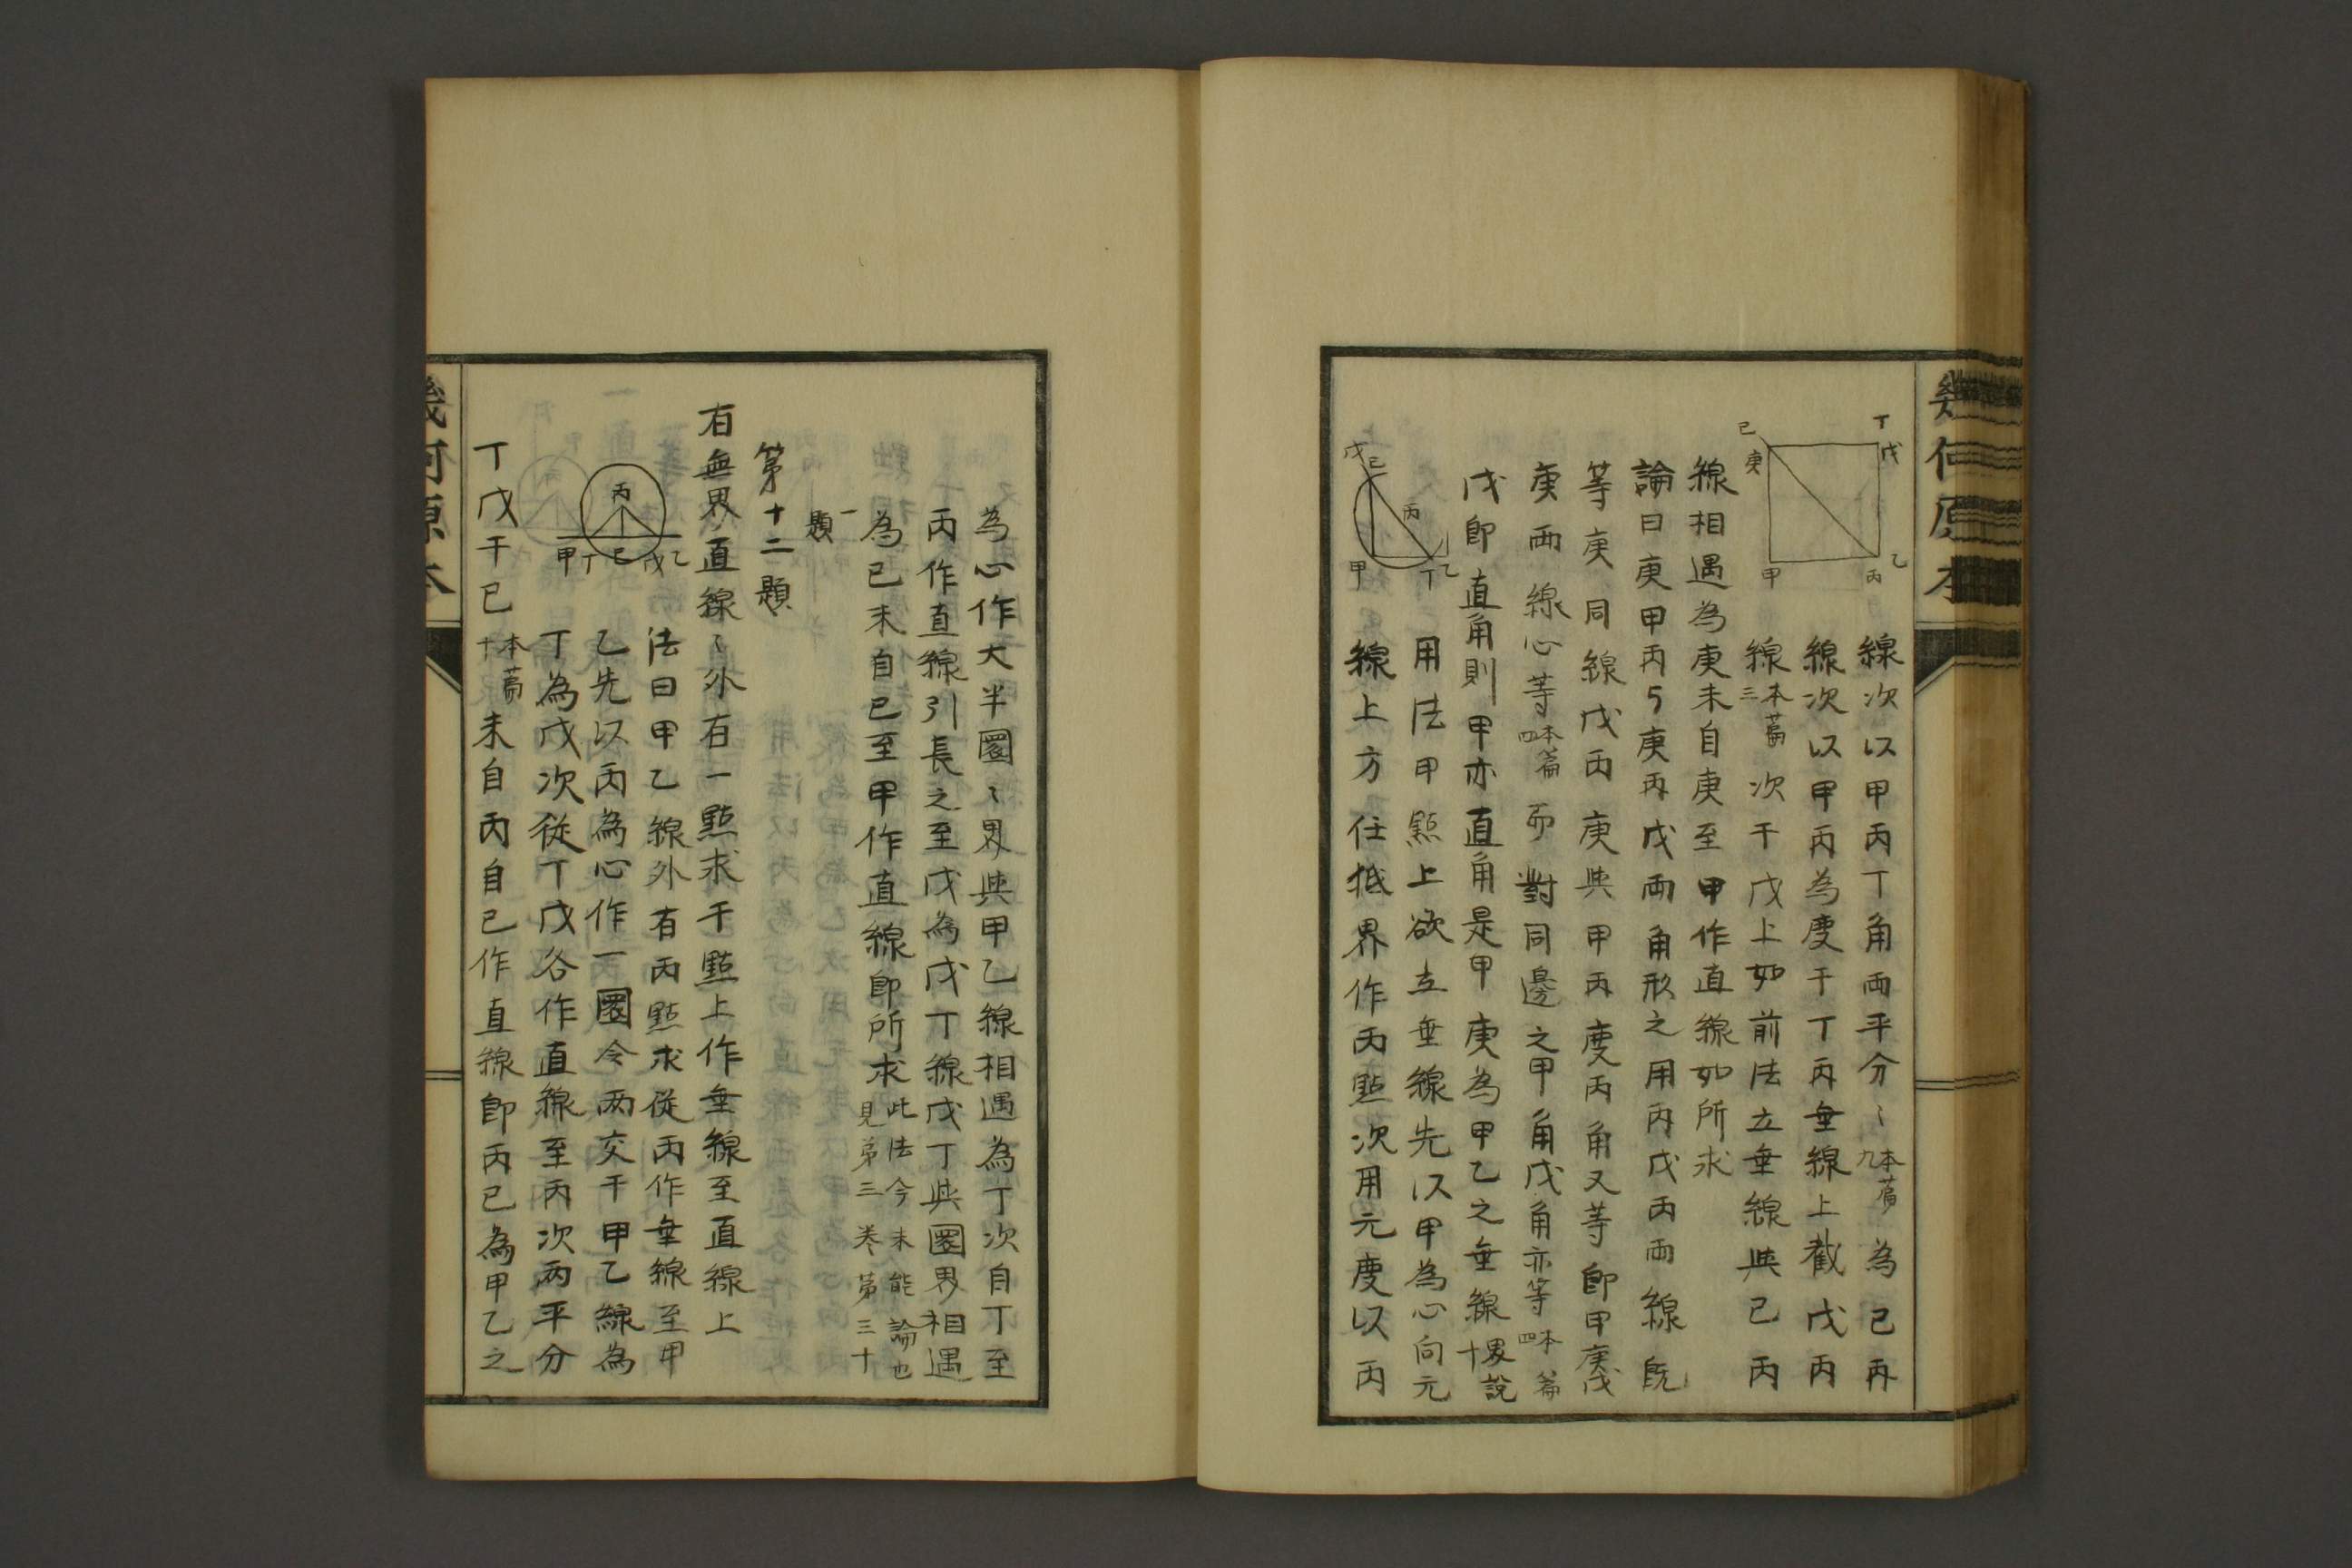 丁
戊
己
庚
甲
丙
乙
線次以甲丙丁角兩平分〻本篇九為己丙
線次以甲丙為度于丁丙垂線上截戊丙
線本篇三次于戊上如前法立垂線與己丙
線相遇為庚末自庚至甲作直線如所求
論曰庚甲丙与庚丙戊兩角形之用丙戊丙兩線既
等庚同線戊丙庚與甲丙度丙角又等卽甲庚戊
庚兩線心等本篇四而對同邊之甲角戊角亦等本篇四
戊卽直角則甲亦直角是甲庚為甲乙之垂線界說十
用法甲㸃上欲立垂線先以甲為心向元
線上方任抵界作丙㸃次用元度以丙
戊
己
丙
甲
丁
乙
幾何原本
為心作大半圜〻界與甲乙線相遇為丁次自丁至
丙作直線引長之至戊為戊丁線戊丁與圜界相遇
為己末自己至甲作直線卽所求此法今未能論也見第三卷第三十
一題
第十二題
有無界直線〻外有一㸃求于㸃上作垂線至直線上
丙
甲
丁
己
戊
乙
法曰甲乙線外有丙㸃求從丙作垂線至甲
乙先以丙為心作一圜令兩交于甲乙線為
丁為戊次從丁戊各作直線至丙次兩平分
丁戊于己本篇十末自丙自己作直線卽丙己為甲乙之
幾何原本